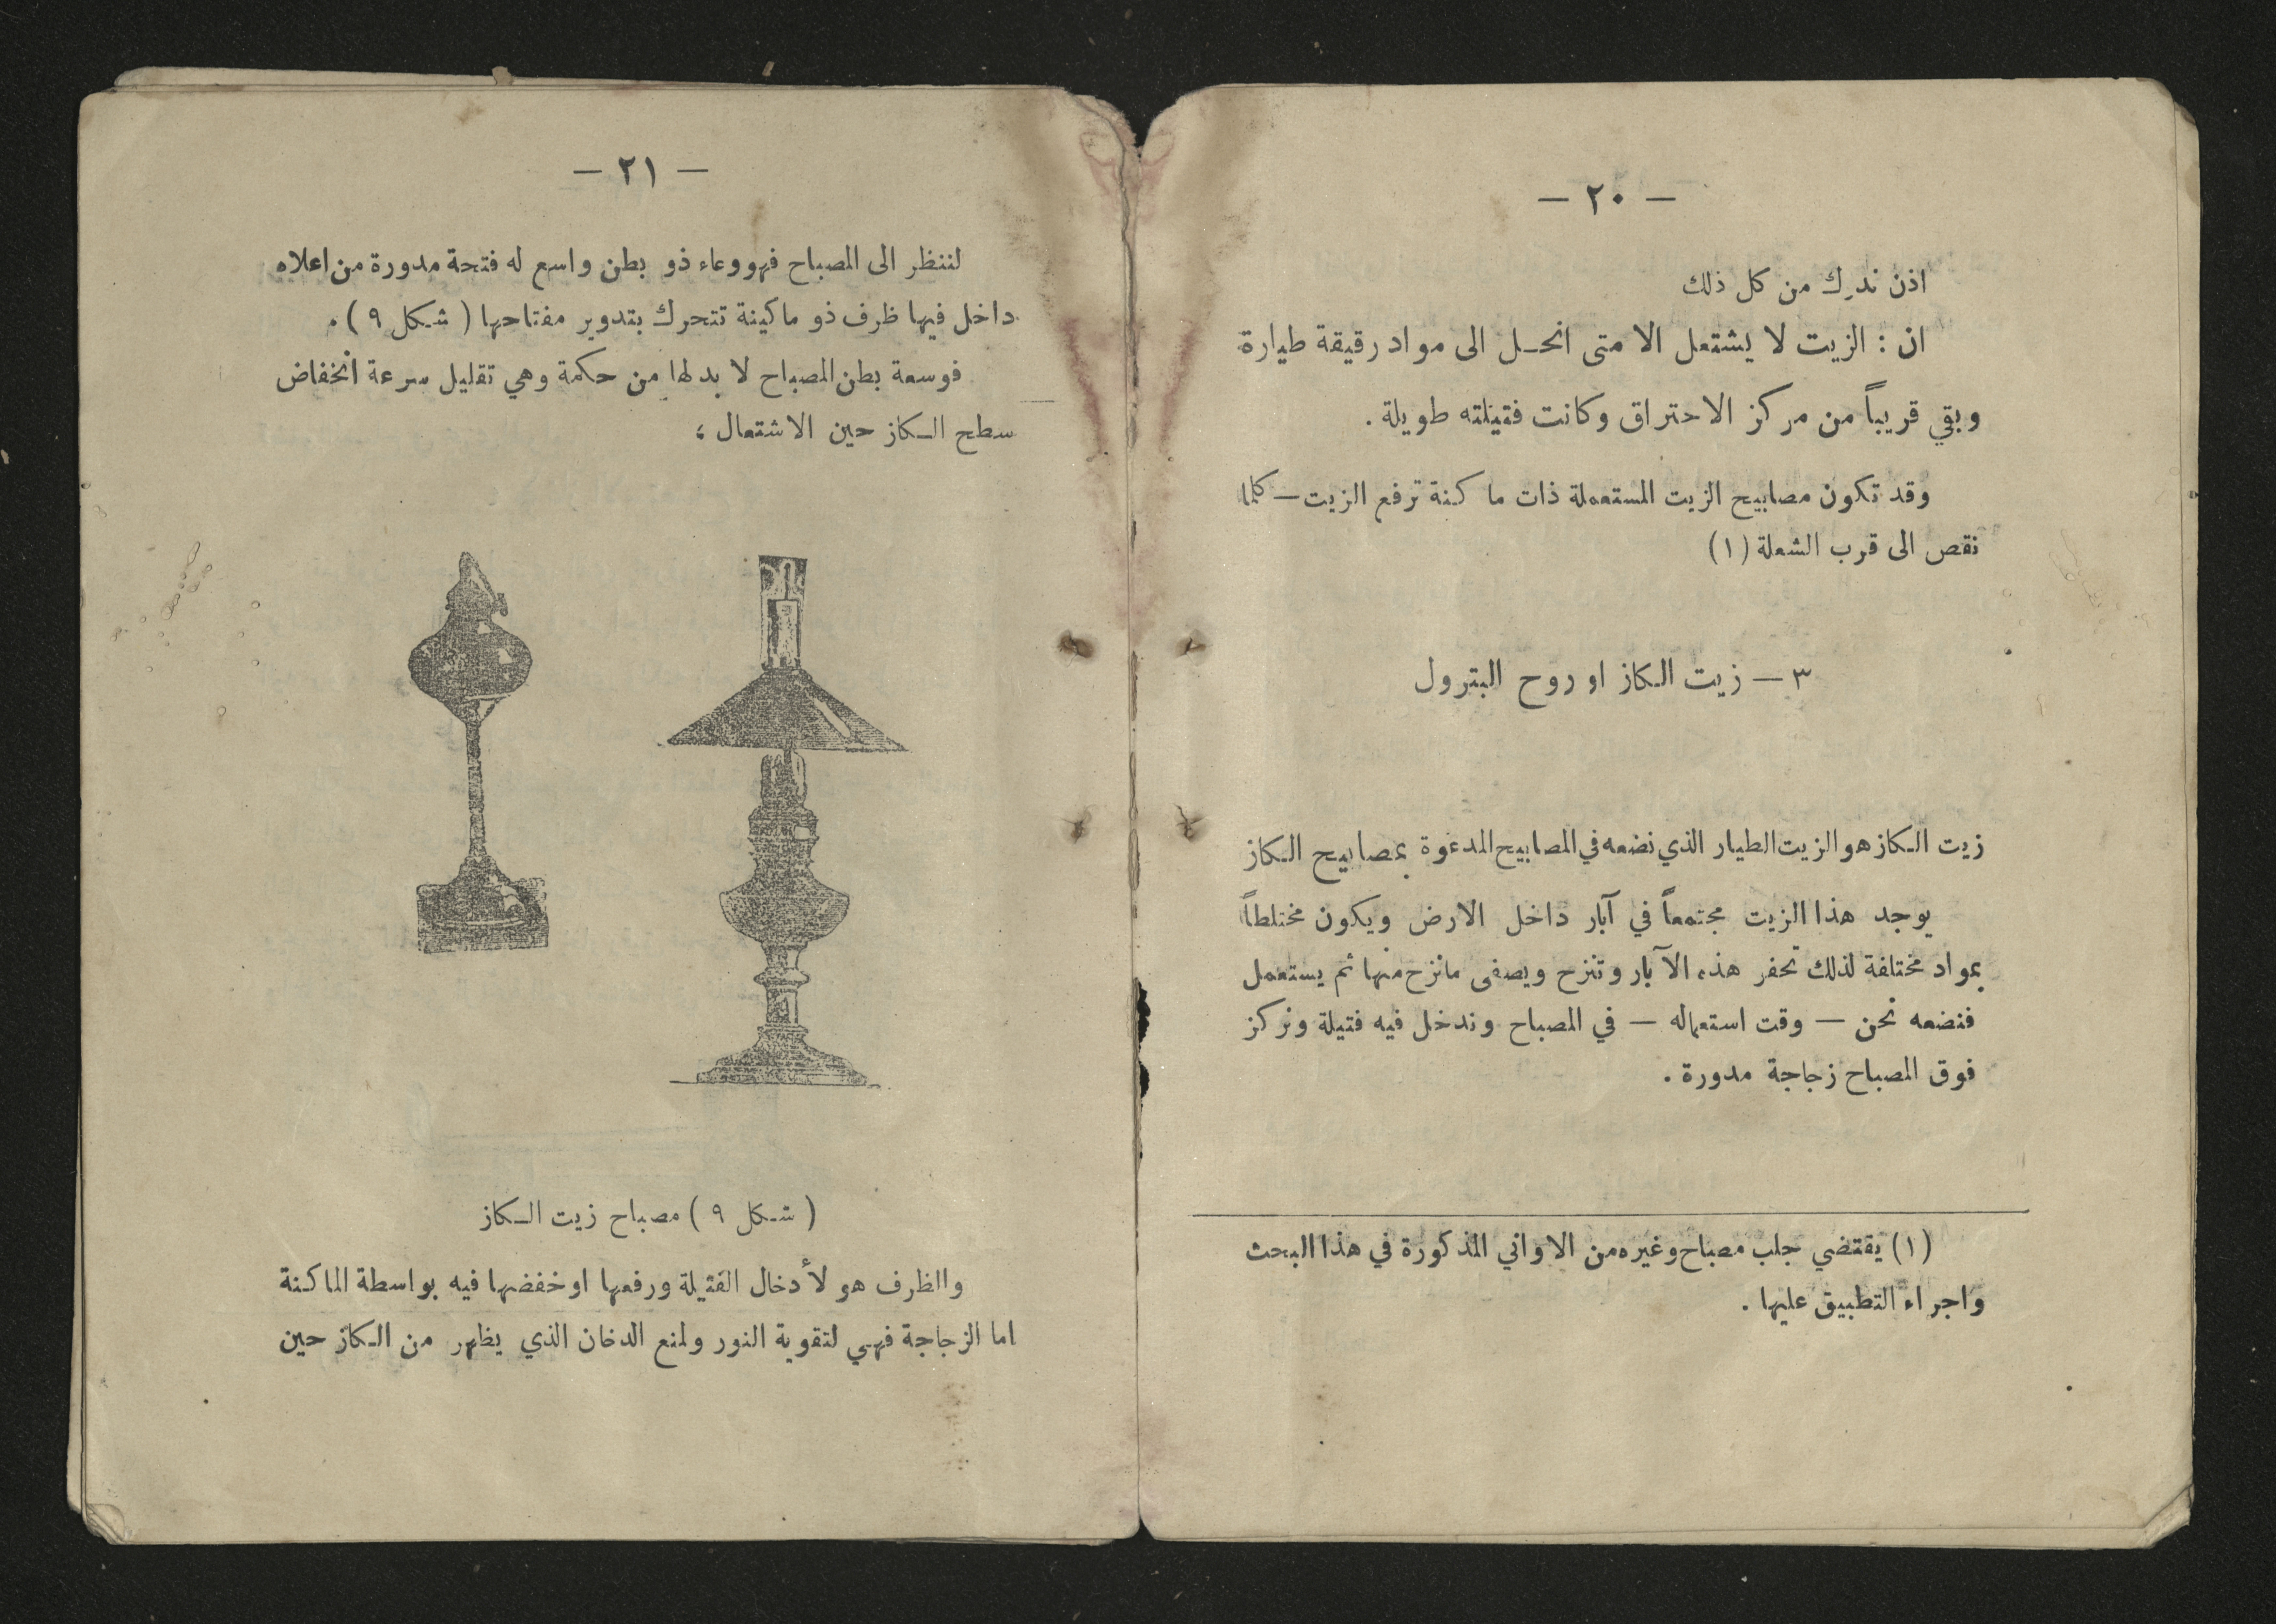 — ٢٠ —
اذن ندرك من كل ذلك
ان : الزيت لا يشتعل الا متى انحـل الى مواد رقيقة طيارة
وبقي قريباً من مركز الاحتراق وكانت فتيلته طويلة .
وقد تكون مصابيح الزيت المستعملة ذات ماكنة ترفع الزيت — كلما
نقص الى قرب الشعلة (١)
٣ — زيت الـكاز او روح البترول
زيت الـكاز هو الزيت الطيار الذي نضعه في المصابيح المدعوة بمصابيح الـكاز
يوجد هذا الزيت مجتمعاً في آبار داخل الارض ويكون مختلطاً
بمواد مختلفة لذلك تحفر هذه الآبار وتنزح ويصفى مانزح منها ثم يستعمل
فنضعه نحن — وقت استعماله — في المصباح وندخل فيه فتيلة ونركز
فوق المصباح زجاجة مدورة .
(١) يقتضي جلب مصباح وغيره من الاواني المذكورة في هذا البحث
واجراء التطبيق عليها .
— ٢١ —
لننظر الى المصباح فهو وعاء ذو بطن واسع له فتحة مدورة من اعلاه
داخل فيها ظرف ذو ماكينة تتحرك بتدوير مفتاحها ( شـكل ٩ ) .
فوسعة بطن المصباح لا بد لها من حكمة وهي تقليل سرعة انخفاض
سطح الـكاز حين الاشتعال ؛
( شـكل ٩ ) مصباح زيت الـكاز
والظرف هو لأدخال الفتيلة ورفعها او خفضها فيه بواسطة الماكنة
اما الزجاجة فهي لتقوية النور ولمنع الدخان الذي يظهر من الـكاز حين